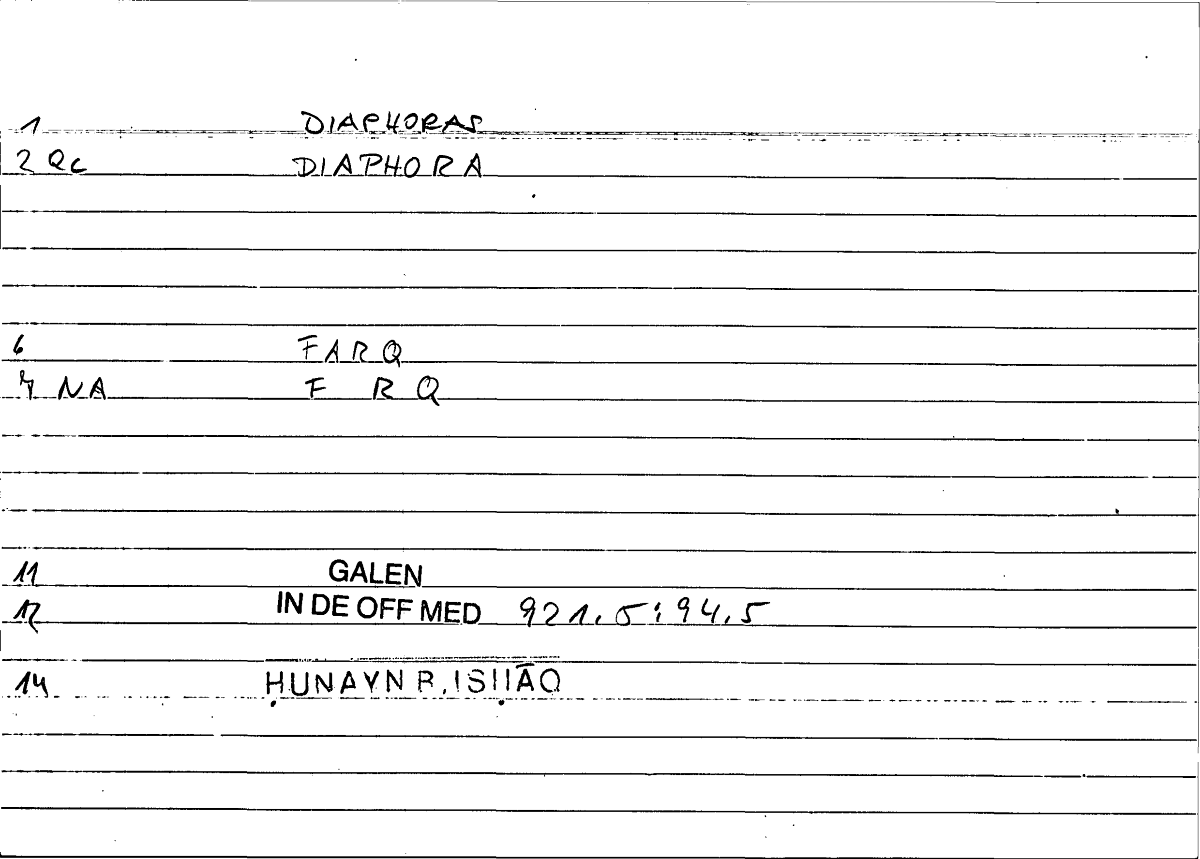 1 DIAPHORAS
2 Qc DIAPHORA
6 FARQ
7 NA F R Q
11 GALEN
12 IN DE OFF MED 921.5:94.5
14 ḤUNAYN B. ISḤĀQ